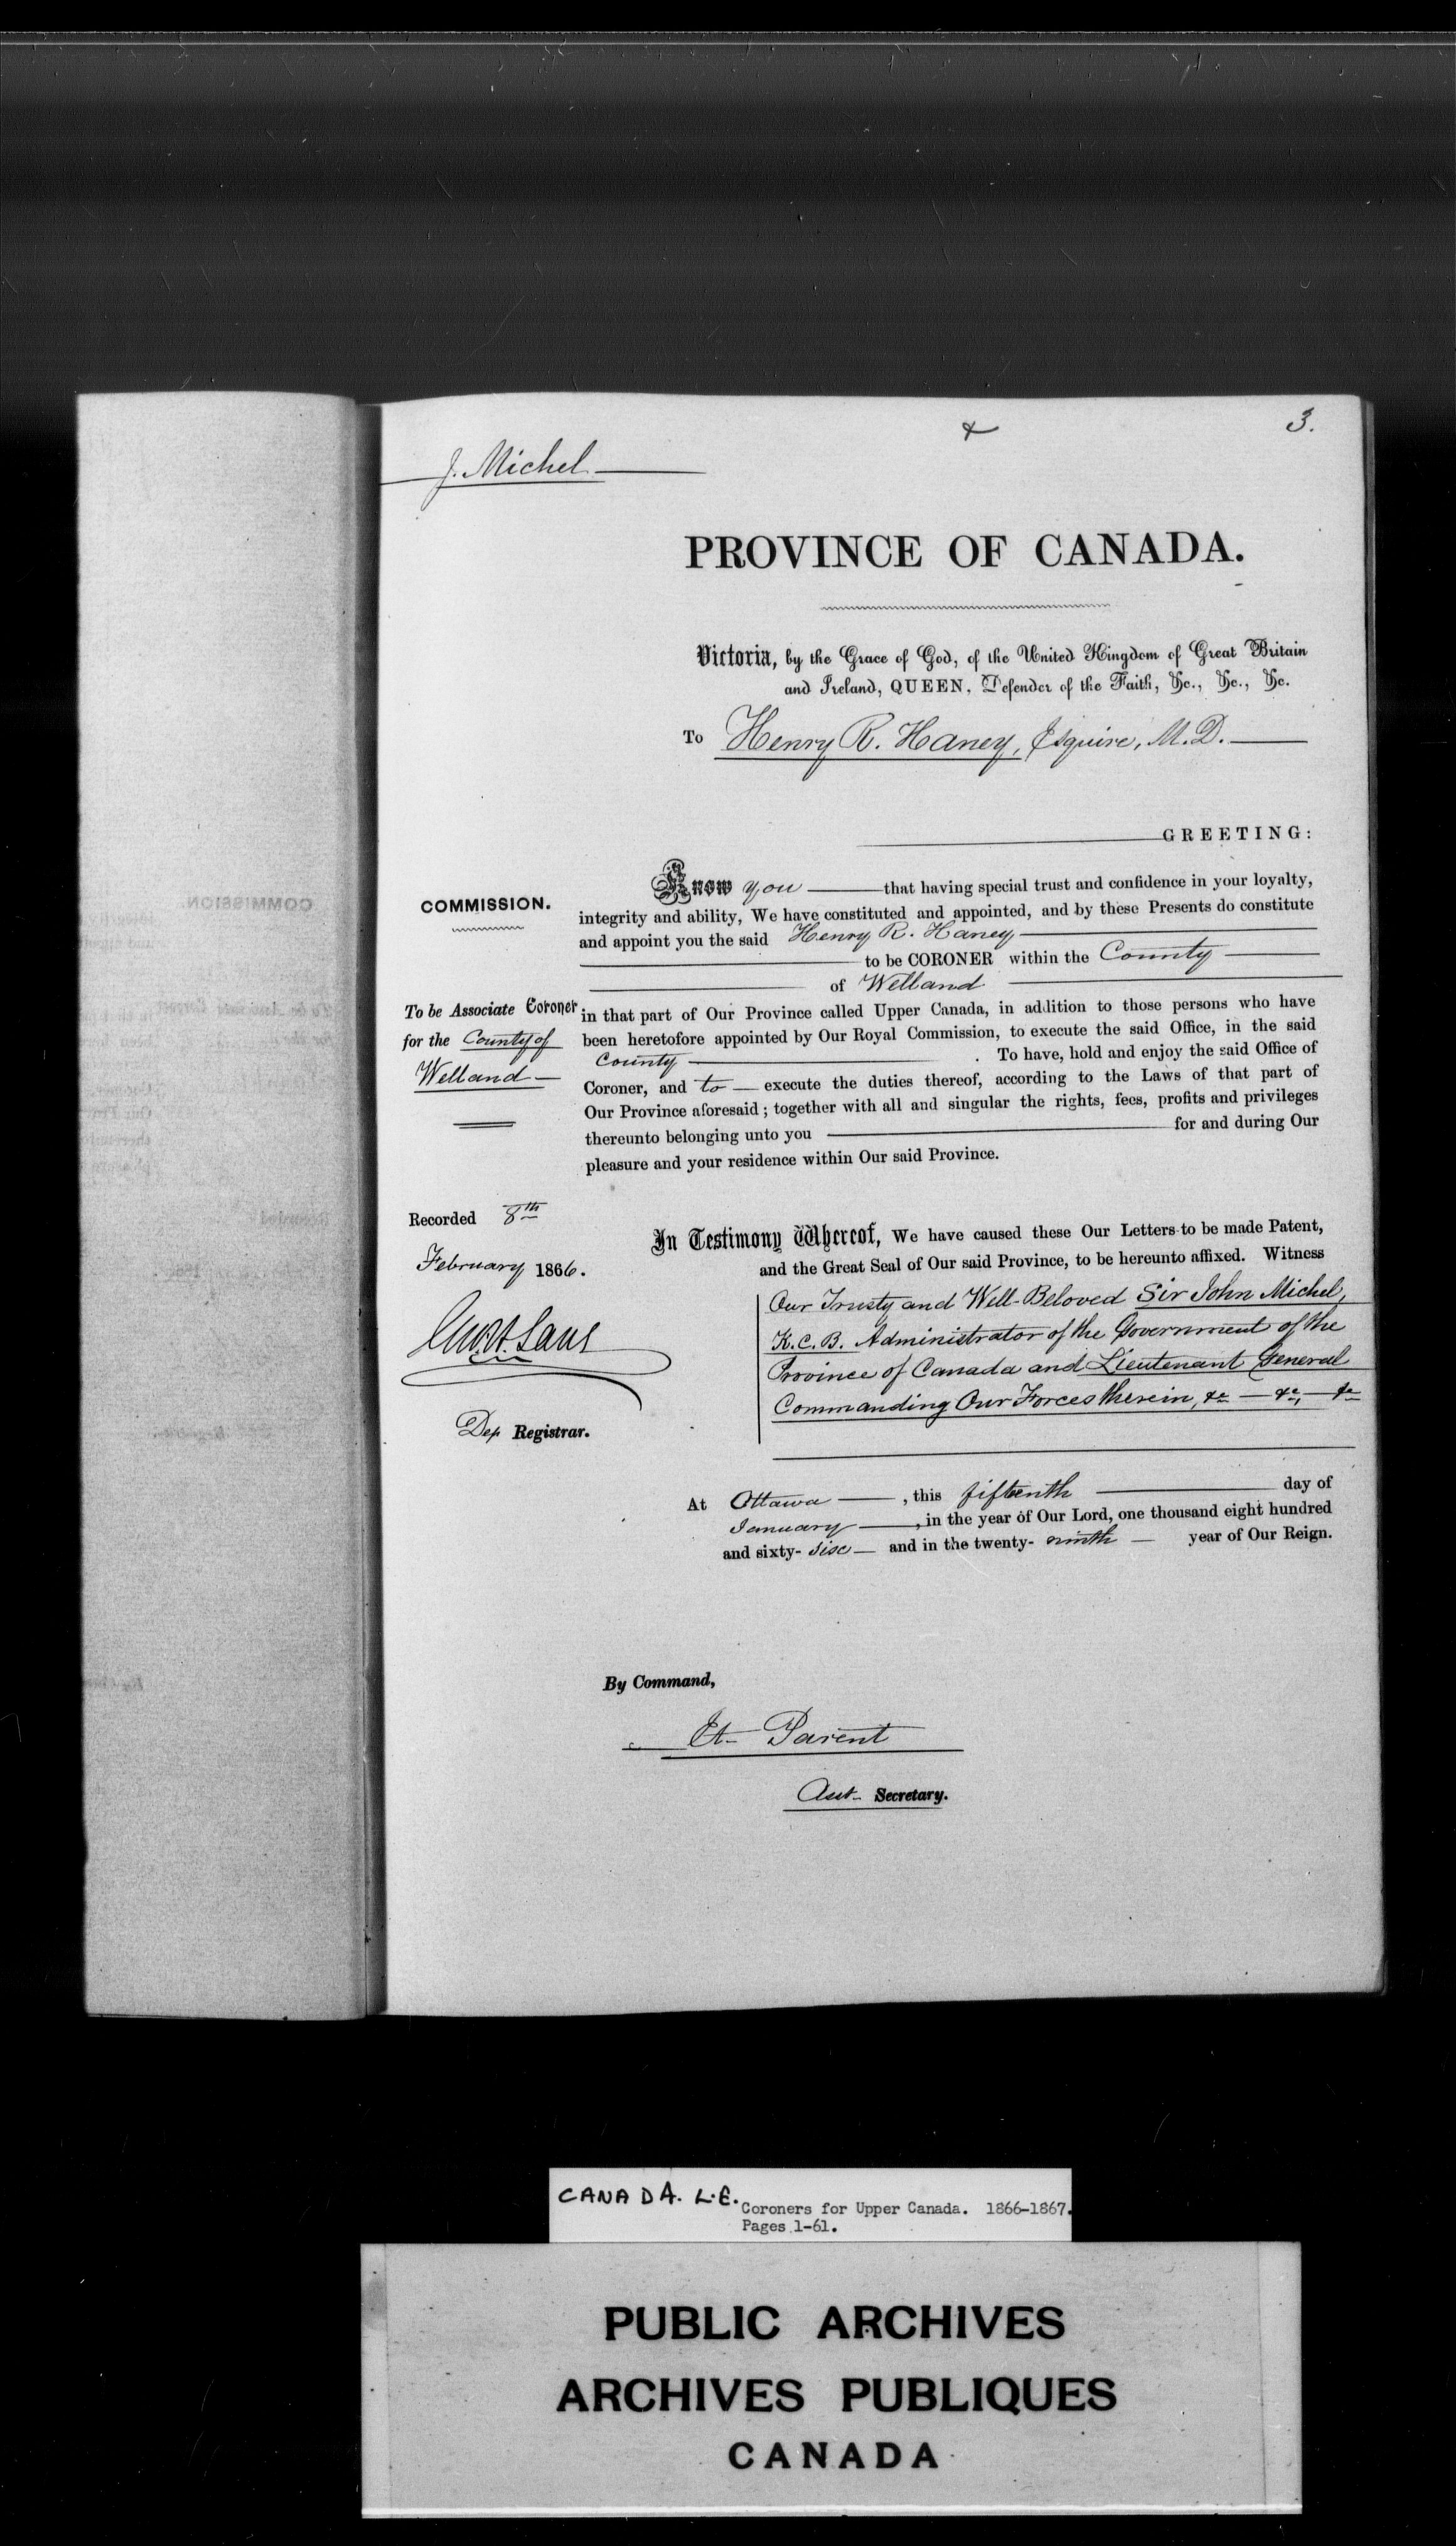 3.
J. Michel
PROVINCE OF CANADA.
Victoria, by the Grace of God, of the United Kingdom of Great Britain
and Ireland, QUEEN, Defender of the Faith, &c., &c., &c.
To Henry R. Haney, Esquire, M.D.
GREETING:
COMMISSION.
Know you that having special trust and confidence in your loyalty,
integrity and ability, We have constituted and appointed, and by these Presents do constitute
and appoint you the said Henry R. Haney
to be CORONER within the County
of Welland
To be Associate Coroner
for the County of
Welland
in that part of Our Province called Upper Canada, in addition to those persons who have
been heretofore appointed by Our Royal Commission, to execute the said Office, in the said
County . To have, hold and enjoy the said Office of
Coroner, and to execute the duties thereof, according to the Laws of that part of
Our Province aforesaid; together with all and singular the rights, fees, profits and privileges
thereunto belonging unto you for and during Our
pleasure and your residence within Our said Province.
Recorded 8th
February 1866.
Dep Registrar.
In Testimony Whereof, We have caused these Our Letters to be made Patent,
and the Great Seal of Our said Province, to be hereunto affixed. Witness
Our Trusty and Well-Beloved Sir John Michel,
K.C.B. Administrator of the Government of the
Province of Canada and Lieutenant General
Commanding Our Forces therein, &c &c, &c
At Ottawa , this fifteenth day of
January , in the year of Our Lord, one thousand eight hundred
and sixty- six and in the twenty- ninth year of Our Reign.
By Command,
Et. Parent
Asst. Secretary.
CANADA. L.E. Coroners for Upper Canada. 1866-1867.
Pages 1-61.
PUBLIC ARCHIVES
ARCHIVES PUBLIQUES
CANADA